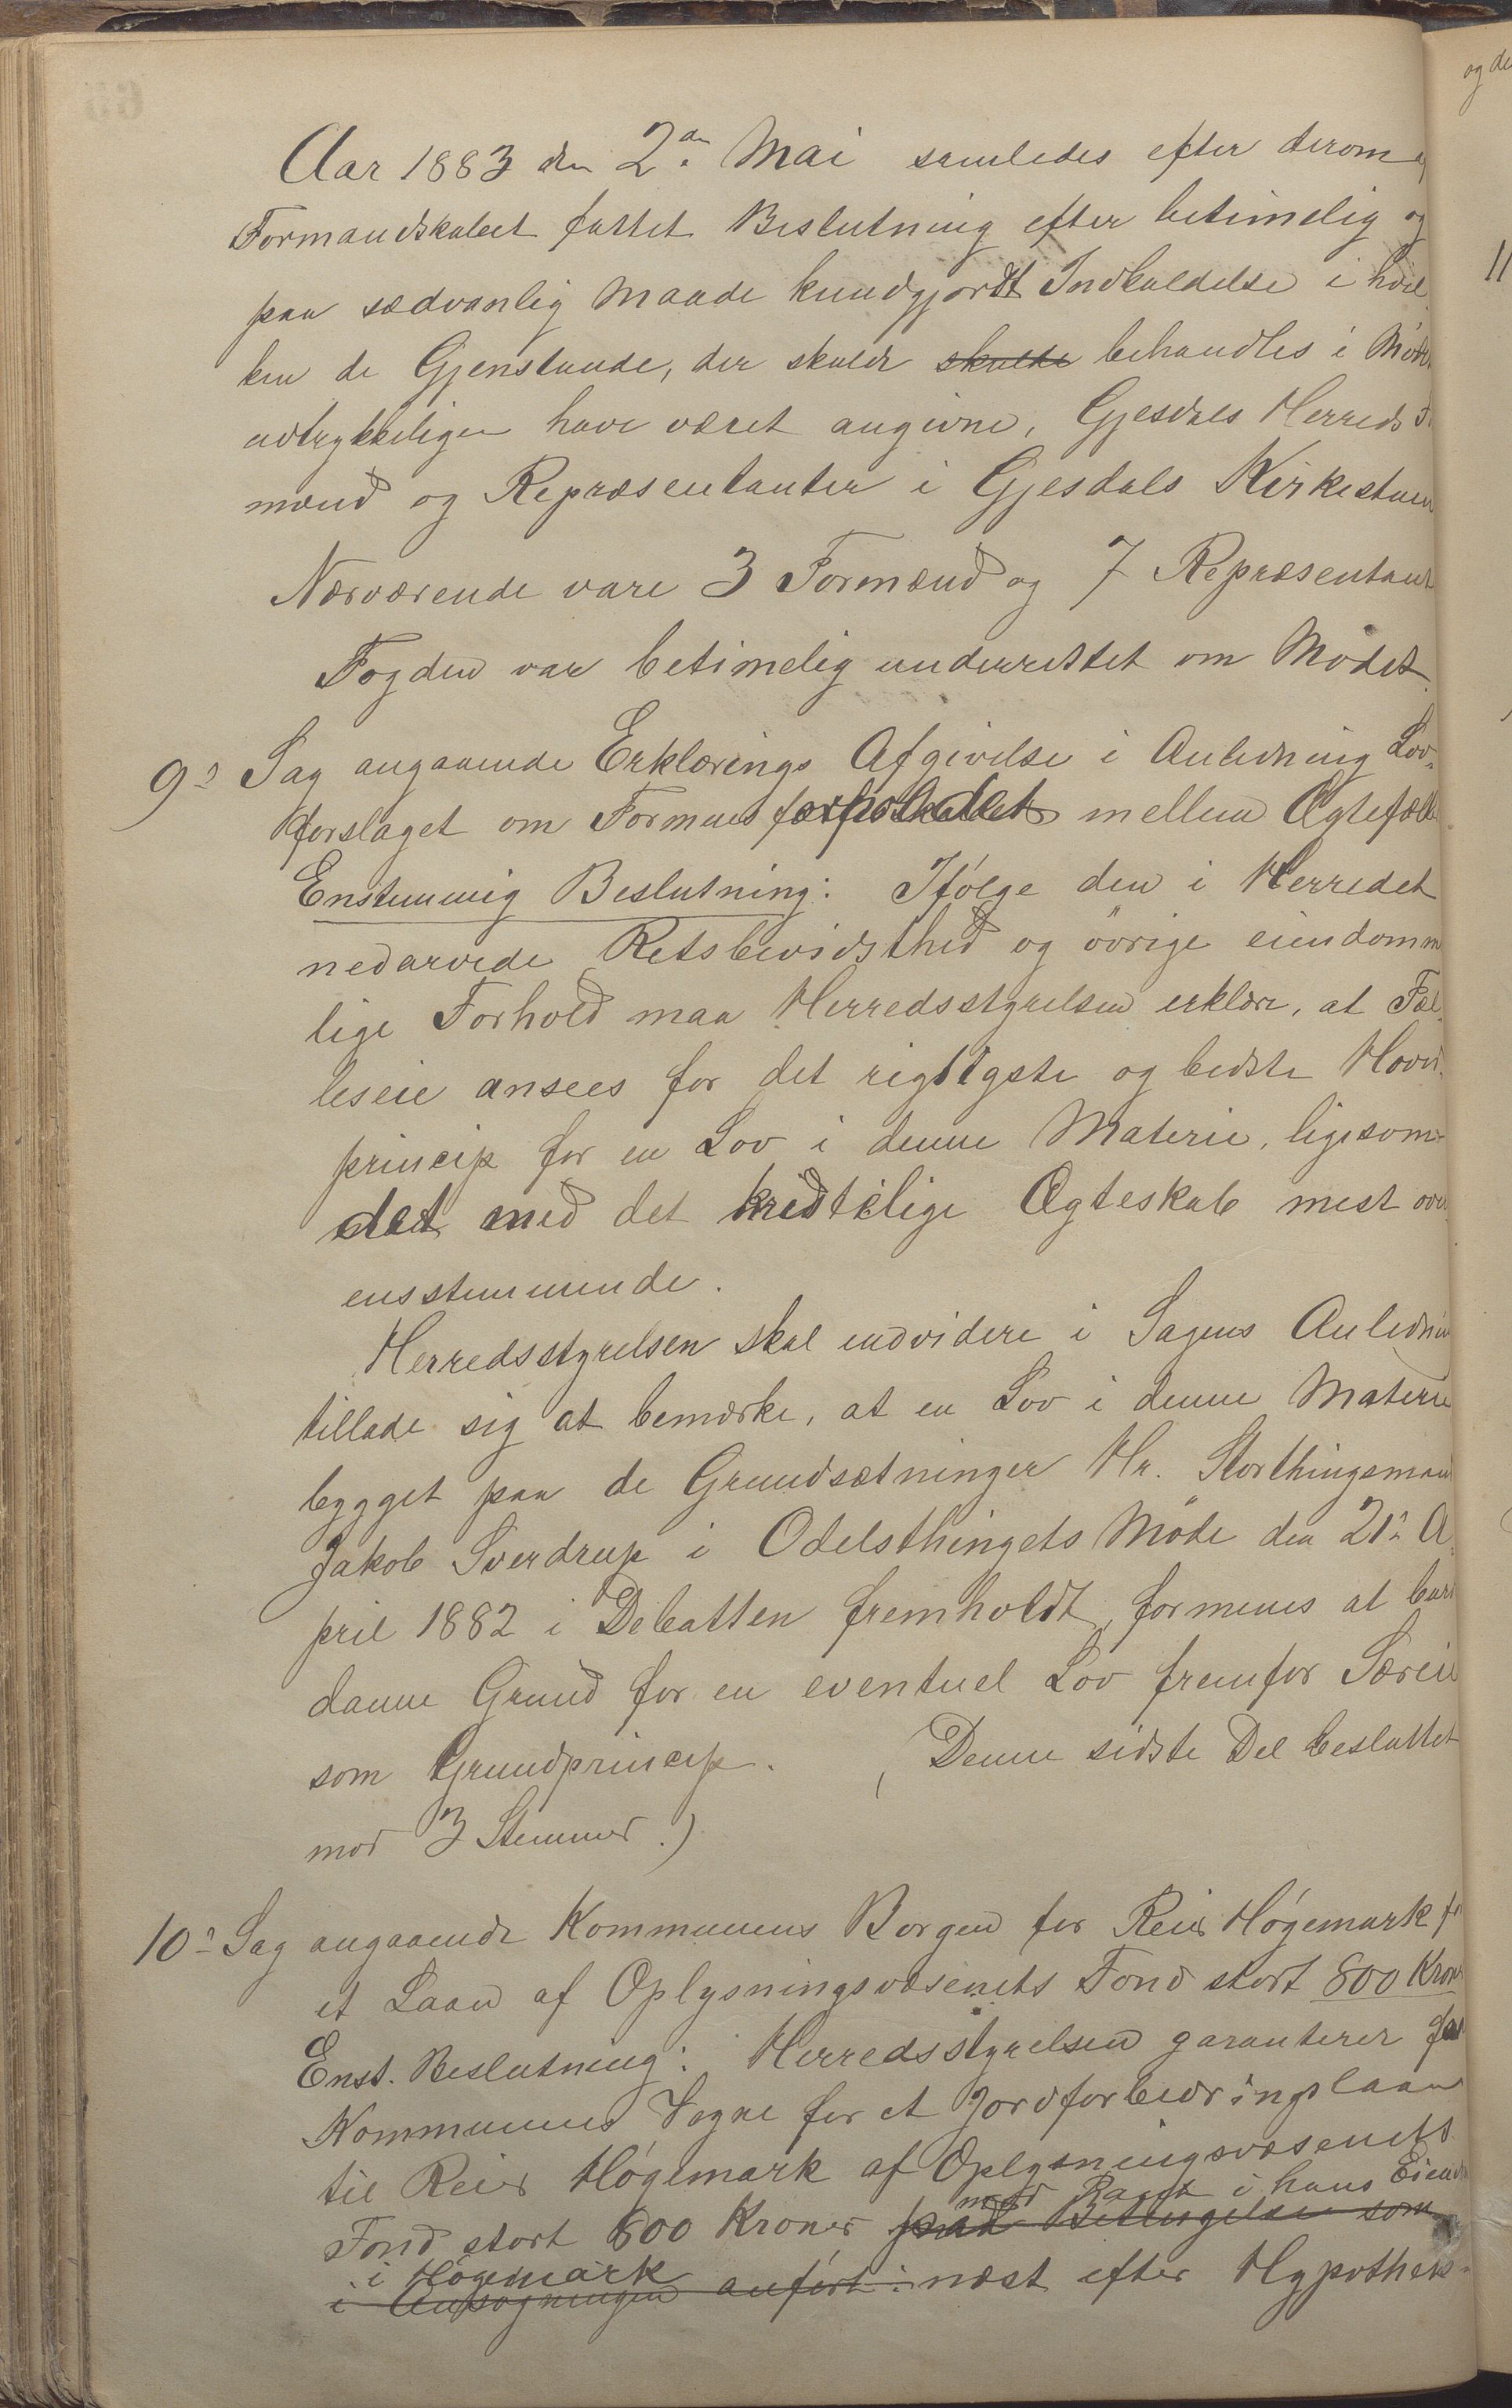 Aar 1883 den 2den Mai samledes efter derom af
Formandskabet fattet Beslutning efter betimelig og
paa sædvanlig Maade kundgjordt Indkaldelse i hvil
ken de Gjenstande, der skulde skulde behandles i Møde
udtrykkeligen have været angivne, Gjesdals Herreds
mænd og Repræsentanter i Gjesdals Kirkestuen
Nærværende vare 3 Formænd og 7 Repræsentant
Fogden var betimelig underrettet om Mødet.
9d Sag angaaende Erklærings Afgivelse i Anledning Lov-
forslaget om Formuesforholdet mellem Ægtefæller
Enstemmig Beslutning: Ifølge den i Herredet
nedarvede Retsbevidsthed og øvrige eiendomme
lige Forhold maa Herredsstyrelsen erklære, at Fæl
leseie ansees for det rigtigste og bedste Hoved
princip for en Lov i denne Materie, ligesom
det med det kristelige Ægteskab mest over
ensstemmende.
Herredsstyrelsen skal endvidere i Sagens Anledning
tillade sig at bemærke, at en Lov i denne Materie
bygget paa de Grundsætninger Hr. Storthingsmand
Jakob Sverdrup i Odelsthingets Møde den 21d A
pril 1882 i Debatten fremholdt, formenes at burde
danne Grund for en eventuel Lov fremfor Særeie
som Grundprincip. (Denne sidste Del besluttet
mod 3 Stemmer.)
10d Sag angaaende Kommunens Borgen for Reier Høgemark for
et Laan af Oplysningsvæsenets Fond stort 800 Kroner
Enst. Beslutning: Herredsstyrelsen garanterer paa
Kommunens Vegne for et Jordforbedringslaan
til Reier Høgemark af Oplysningsvæsenets
med Pant i hans Eiendom
Fond stort 800 Kroner paa Betingelse som
i Høgemark
i Ansøgningen anført: næst efter Hypothek-
og de
11